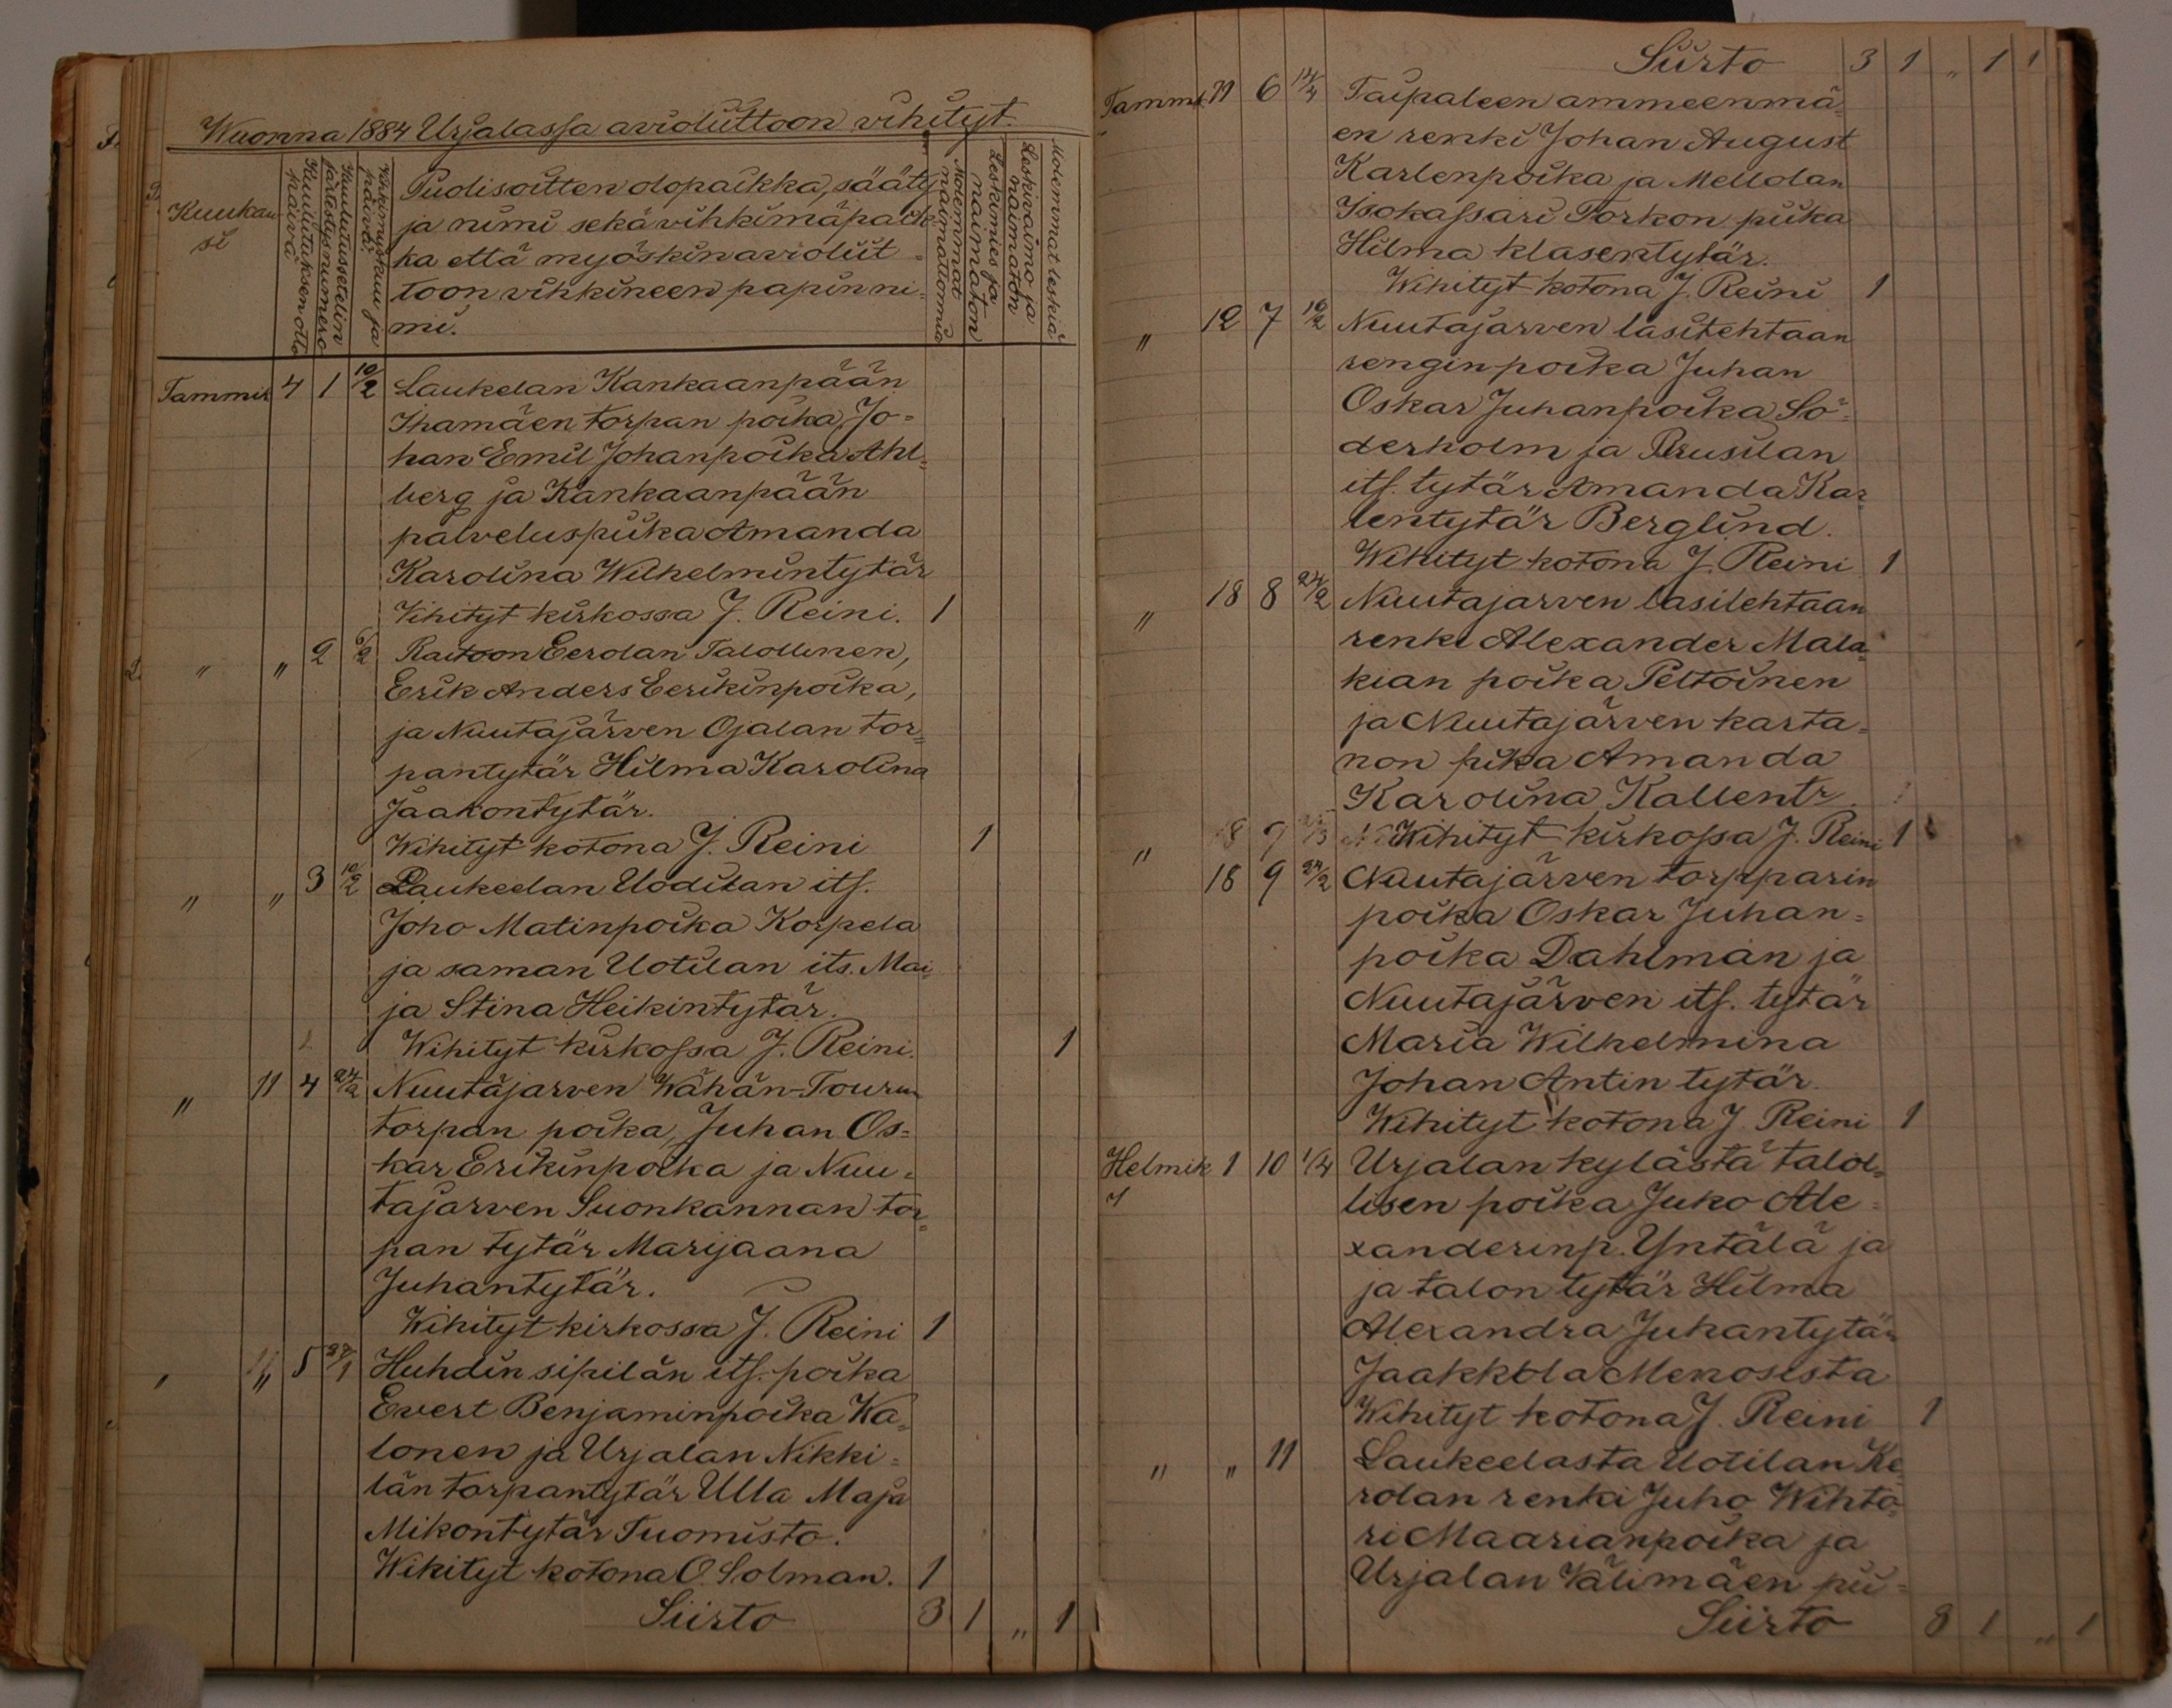 Wuonna 1884 Urjalassa avioliittoon vihityt.
Kuukau
si
Kuulutuksen otto
päivä
Kuulutussetelin
järjestysnumero
Vihkimyskuu ja
päivä
Puolisoitten olopaikka, sääty
ja nimi sekä vihkimäpaik
ka että myöskin avioliit=
toon vihkineen papin ni=
mi.
Molemmat
naimattomia
Leskimies ja
naimaton
Leskivaimo ja
naimaton
Molemmat leskiä
Tammik 4 1 10/2 Laukelan Kankaanpään
Ihamäen torpan poika, Jo=
han Emil Johanpoika Ahl=
berg ja Kankaanpään
palveluspiika Amanda
Karolina Wilhelmintytär
Vihityt kirkossa J. Reini. 1
" " 2 6/2 Raitoon Eerolan Talollinen,
Erik Anders Eerikinpoika,
ja Nuutajärven Ojalan tor=
pantytär Hilma Karolina
Jaakontytär.
Wihityt kotona J. Reini 1
" " 3 10/2 Laukeelan Uodilan its.
Joho Matinpoika Korpela
ja saman Uotilan its. Mai=
ja Stina Heikintytär.
Wihityt kirkossa J. Reini. 1
" 11 4 24/2 Nuutajarven Wähän-Tourun
torpan poika, Juhan Os=
kar Erikinpoika ja Nuu=
tajarven Suonkannan tor=
pan tytär Marijaana
Juhantytär.
Wihityt kirkossa J. Reini 1
" " 5 27/1 Huhdin sipilän its. poika
Evert Benjaminpoika Ka=
lonen ja Urjalan Nikki=
län torpantytär Ulla Maja
Mikontytär Tuomisto.
Wihityt kotona O. Solman. 1
Siirto 3 1 " 1
Siirto 3 1 " 1 1
Tammik 11 6 14/4 Taipaleen ammeenmä=
en renki Johan August
Karlenpoika ja Mellolan
Isokassari Torkon piika
Hilma klasentytär.
Wihityt kotona J. Reini 1
" 12 7 10/2 Nuutajarven lasitehtaan
renginpoika Juhan
Oskar Juhanpoika Sö=
derholm ja Prusilan
its. tytär Amanda Kar=
lentytär Berglind.
Wihityt kotona J. Reini 1
" 18 8 24/2 Nuutajarven lasilehtaan
renki Alexander Mala=
kian poika Peltoinen
ja Nuutajärven karta=
non piika Amanda
Karolina Kallentr.
" Wihityt kirkossa J. Reini 1
18 9 24/2 Nuutajärven torpparin
poika Oskar Juhan=
poika Dahlman ja
Nuutajärven its. tytär
Maria Wilhelmina
Johan Antin tytär.
Wihityt kotona J. Reini 1
Helmik 1 10 1/4 Urjalan kylästä talol=
lisen poika Juko Ale=
xanderinp. Yntälä ja
ja talon tytär Hilma
Alexandra Juhantytär
Jaakkola Menosista
Wihityt kotona J. Reini 1
" " 11 Laukeelasta Uotilan Ke
rolan renki Juho Wihto=
ri Maarianpoika ja
Urjalan Välimäen pii=
Siirto 8 1 " 1